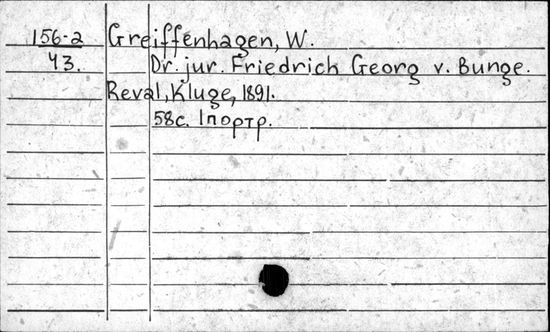 156-2 Greiffenhagen, W.
43. Dr. jur. Friedrich Georg v. Bunge.
Reval, Kluge, 1891.
58с. 1портр.